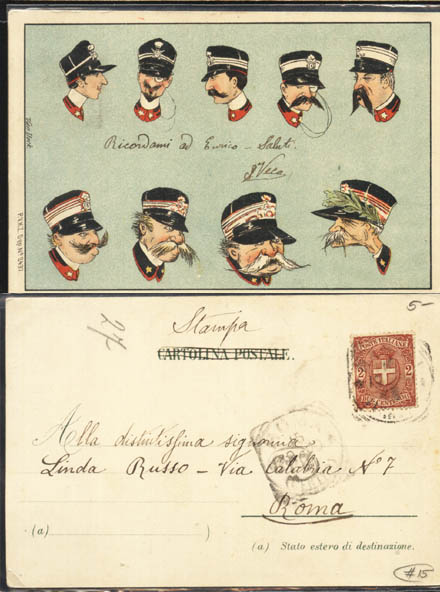 Ricordami ad Enrico - Saluti.
5-
Stampa
CARTOLINA POSTALE.
POSTE ITALIANE
2 2
DUE CENTESIMI
Alla distintissima signorina
Linda Russo - Via Calabria N° 7
Roma
(a) )
(a) Stato estero di destinazione.
#15